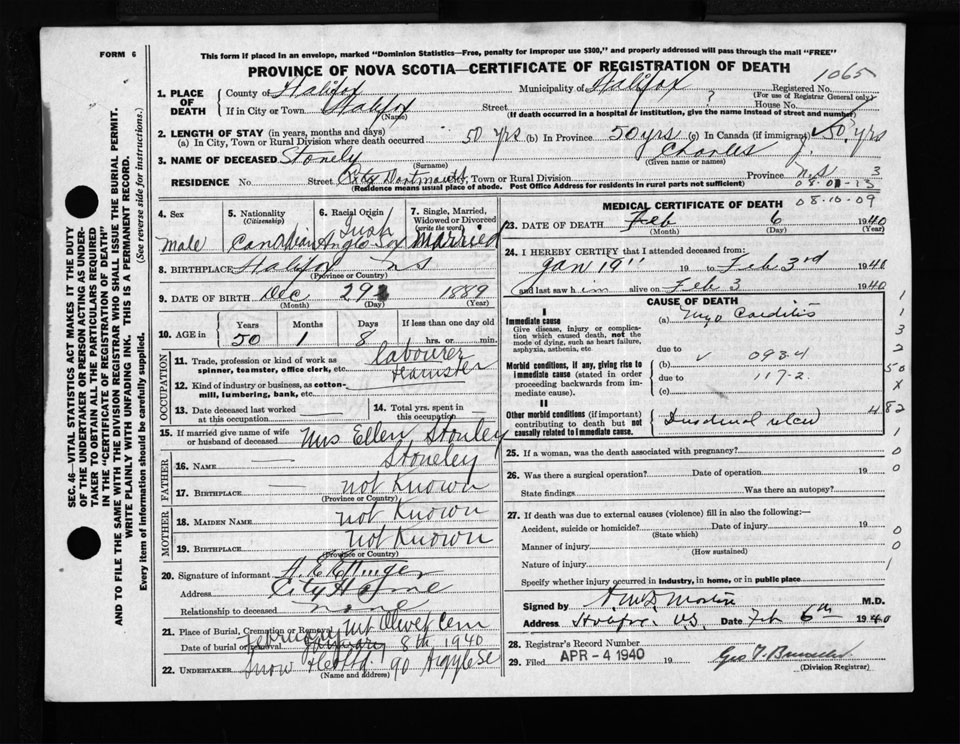 FORM 6
This form if placed in an envelope, marked "Dominion Statistics—Free, penalty for improper use $300," and properly addressed will pass through the mail "FREE"
PROVINCE OF NOVA SCOTIA—CERTIFICATE OF REGISTRATION OF DEATH
1065
1. PLACE OF DEATH
County of Halifax
Municipality of Halifax
Registered No.
(For use of Registrar General only)
If in City or Town Halifax Street ? House No.
(Name) (If death occurred in a hospital or institution, give the name instead of street and number)
2. LENGTH OF STAY (in years, months and days)
(a) In City, Town or Rural Division where death occurred 50 yrs (b) In Province 50 yrs (c) In Canada (if immigrant) 50 yrs
3. NAME OF DECEASED Stonely Charles J.
(Surname) (Given name or names)
RESIDENCE No. Street Dartmouth City, Town or Rural Division Province N.S 3
(Residence means usual place of abode. Post Office Address for residents in rural parts not sufficient)
08-10-09
4. Sex
Male
5. Nationality
(Citizenship)
Canadian
6. Racial Origin
Anglo Sax
7. Single, Married, Widowed or Divorced
(write the word)
Married
8. BIRTHPLACE Halifax NS
(Province or Country)
9. DATE OF BIRTH Dec 29 1889
(Month) (Day) (Year)
10. AGE in
Years Months Days If less than one day old
50 1 8 hrs. or min.
OCCUPATION
11. Trade, profession or kind of work as spinner, teamster, office clerk, etc. labourer
teamster
12. Kind of industry or business, as cotton-mill, lumbering, bank, etc.
13. Date deceased last worked at this occupation
14. Total yrs. spent in this occupation
15. If married give name of wife or husband of deceased Mrs Ellen Stonley
FATHER
16. NAME — Stoneley
17. BIRTHPLACE — not Known
(Province or Country)
MOTHER
18. MAIDEN NAME not Known
19. BIRTHPLACE not Known
(Province or Country)
20. Signature of informant A. E. Ettinger
Address City Home
Relationship to deceased none
21. Place of Burial, Cremation or Removal Mt Olivet Cem
Date of burial or removal February January 8th 1940
22. UNDERTAKER Snow 90 Argyle St
(Name and address)
MEDICAL CERTIFICATE OF DEATH
23. DATE OF DEATH Feb 6 1940
(Month) (Day) (Year)
24. I HEREBY CERTIFY that I attended deceased from:
Jan 19 19 to Feb 3rd 1940
and last saw him alive on Feb 3 1940
CAUSE OF DEATH
I
Immediate cause
Give disease, injury or complication which caused death, not the mode of dying, such as heart failure, asphyxia, asthenia, etc
(a) Myo Carditis
due to
Morbid conditions, if any, giving rise to immediate cause (stated in order proceeding backwards from immediate cause).
(b) 093-4
due to 117-2
(c)
II
Other morbid conditions (if important) contributing to death but not causally related to immediate cause.
Duodenal ulcer
1
1
3
2
50
X
482
1
0
0
0
0
1
25. If a woman, was the death associated with pregnancy?
26. Was there a surgical operation? Date of operation 19
State findings Was there an autopsy?
27. If death was due to external causes (violence) fill in also the following:—
Accident, suicide or homicide? Date of injury 19
(State which)
Manner of injury
(How sustained)
Nature of injury
Specify whether injury occurred in industry, in home, or in public place
Signed by M.D.
Address Halifax N.S. Date Feb 6th 1940
28. Registrar's Record Number
29. Filed APR - 4 1940 19
(Division Registrar)
SEC. 46—VITAL STATISTICS ACT MAKES IT THE DUTY OF THE UNDERTAKER OR PERSON ACTING AS UNDERTAKER TO OBTAIN ALL THE PARTICULARS REQUIRED IN THE "CERTIFICATE OF REGISTRATION OF DEATH" AND TO FILE THE SAME WITH THE DIVISION REGISTRAR WHO SHALL ISSUE THE BURIAL PERMIT.
WRITE PLAINLY WITH UNFADING INK. THIS IS A PERMANENT RECORD.
Every item of information should be carefully supplied. (See reverse side for instructions.)